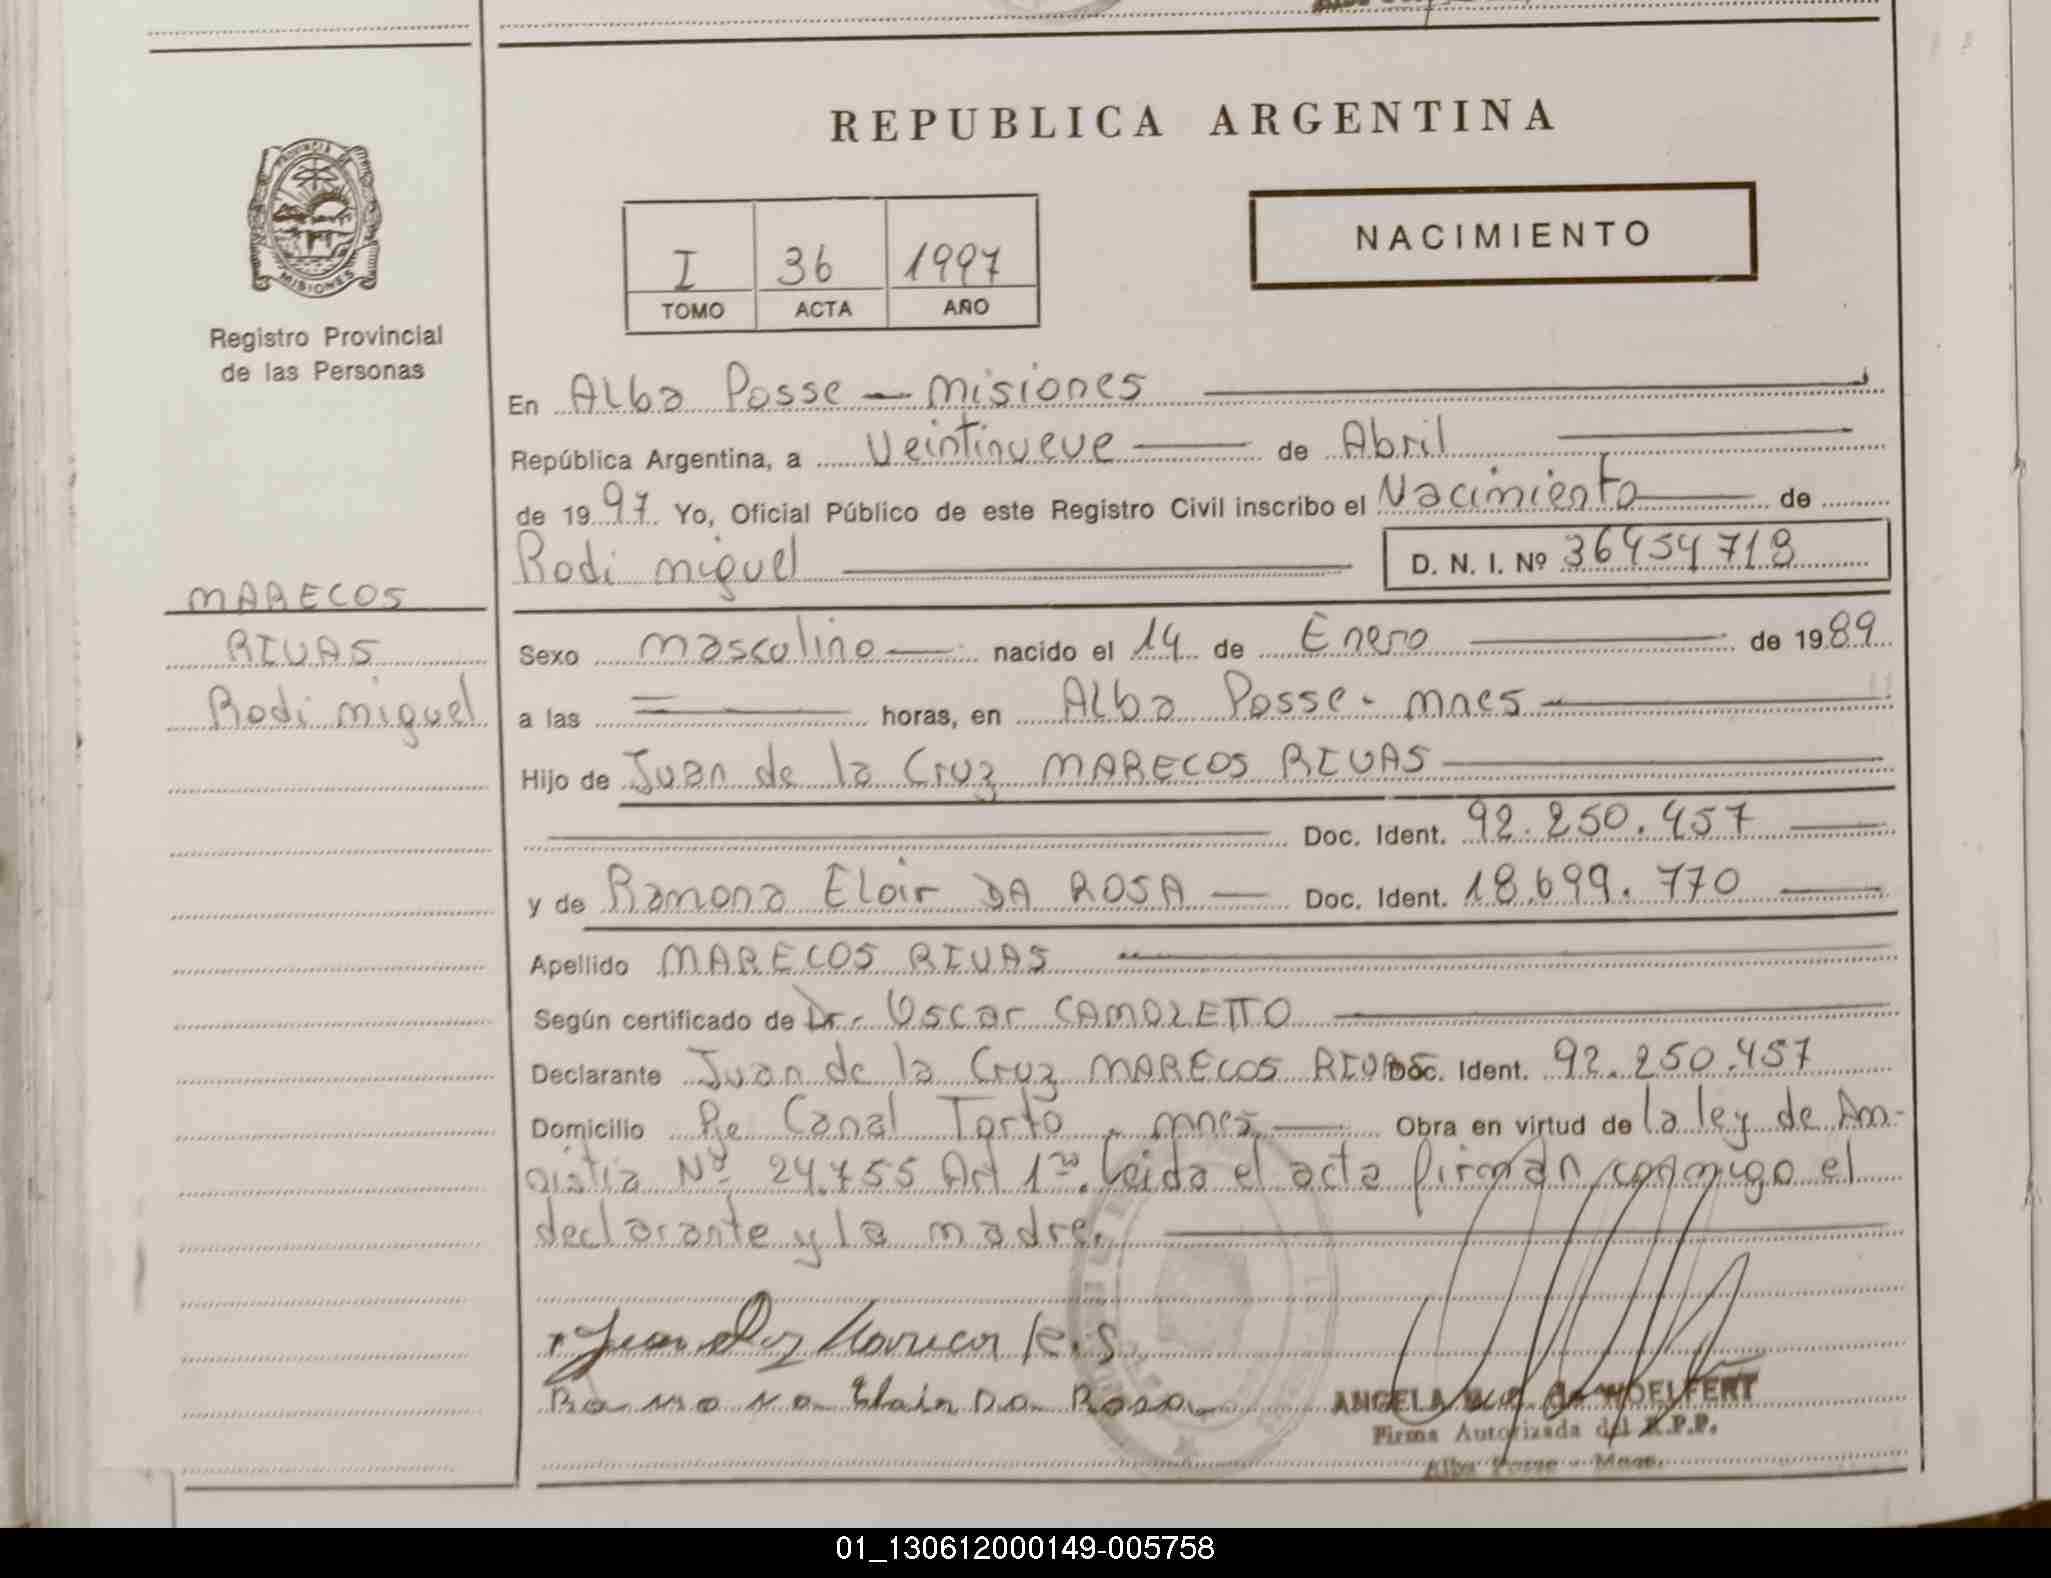 REPUBLICA ARGENTINA
PROVINCIA DE
MISIONES
Registro Provincial
de las Personas
I 36 1997
TOMO ACTA AÑO
NACIMIENTO
En Alba Posse — Misiones
República Argentina, a Veintinueve de Abril
de 1997. Yo, Oficial Público de este Registro Civil inscribo el Nacimiento de
Rodi Miguel D. N. I. Nº 36454718
MARECOS
RIVAS
Rodi Miguel
Sexo Masculino nacido el 14 de Enero de 1989
a las = horas, en Alba Posse - Mnes
Hijo de Juan de la Cruz MARECOS RIVAS
Doc. Ident. 92.250.457
y de Ramona Eloir DA ROSA — Doc. Ident. 18.699.770
Apellido MARECOS RIVAS
Según certificado de Dr. Oscar CAMOZETTO
Declarante Juan de la Cruz MARECOS RIVAS Doc. Ident. 92.250.457
Domicilio Pje Canal Torto - Mnes Obra en virtud de la ley de Am-
nistia Nº 24.755 Art 1ro. Leida el acta firman conmigo el
declarante y la madre.
Ramona Elair Da Rosa
ANGELA de WOELFERT
Firma Autorizada del R.P.P.
Alba Posse - Mnes.
01_130612000149-005758